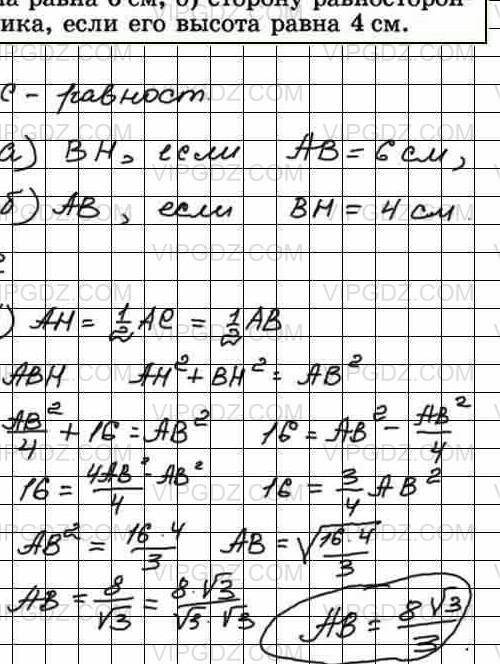 на равна 6 см; б) сторону равносторон-
ика, если его высота равна 4 см.
С - равност.
а) BH, если AB = 6 см,
б) AB, если BH = 4 см.
) AH = 1/2 AC = 1/2 AB
ABH AH² + BH² = AB²
AB²/4 + 16 = AB² 16 = AB² - AB²/4
16 = (4AB² - AB²)/4 16 = 3/4 AB²
AB² = (16·4)/3 AB = √((16·4)/3)
AB = 8/√3 = (8·√3)/(√3·√3) AB = (8√3)/3
VIPGDZ.COM